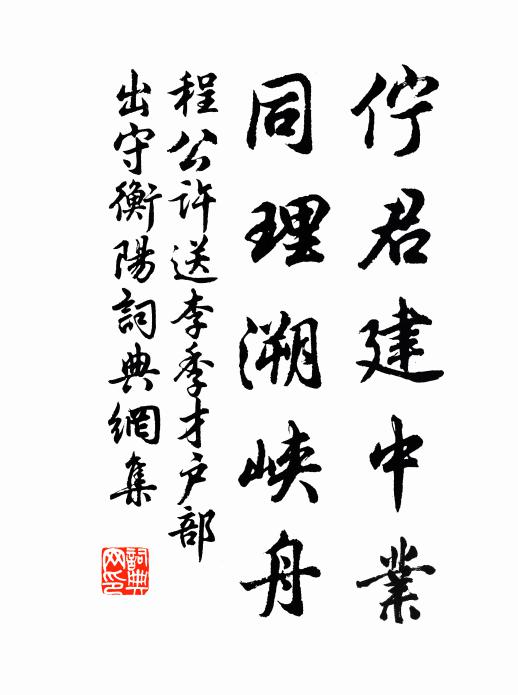 佇君建中業
同理溯峽舟
程公許送李季才户部
出守衡陽詞典網集
詞典
网印